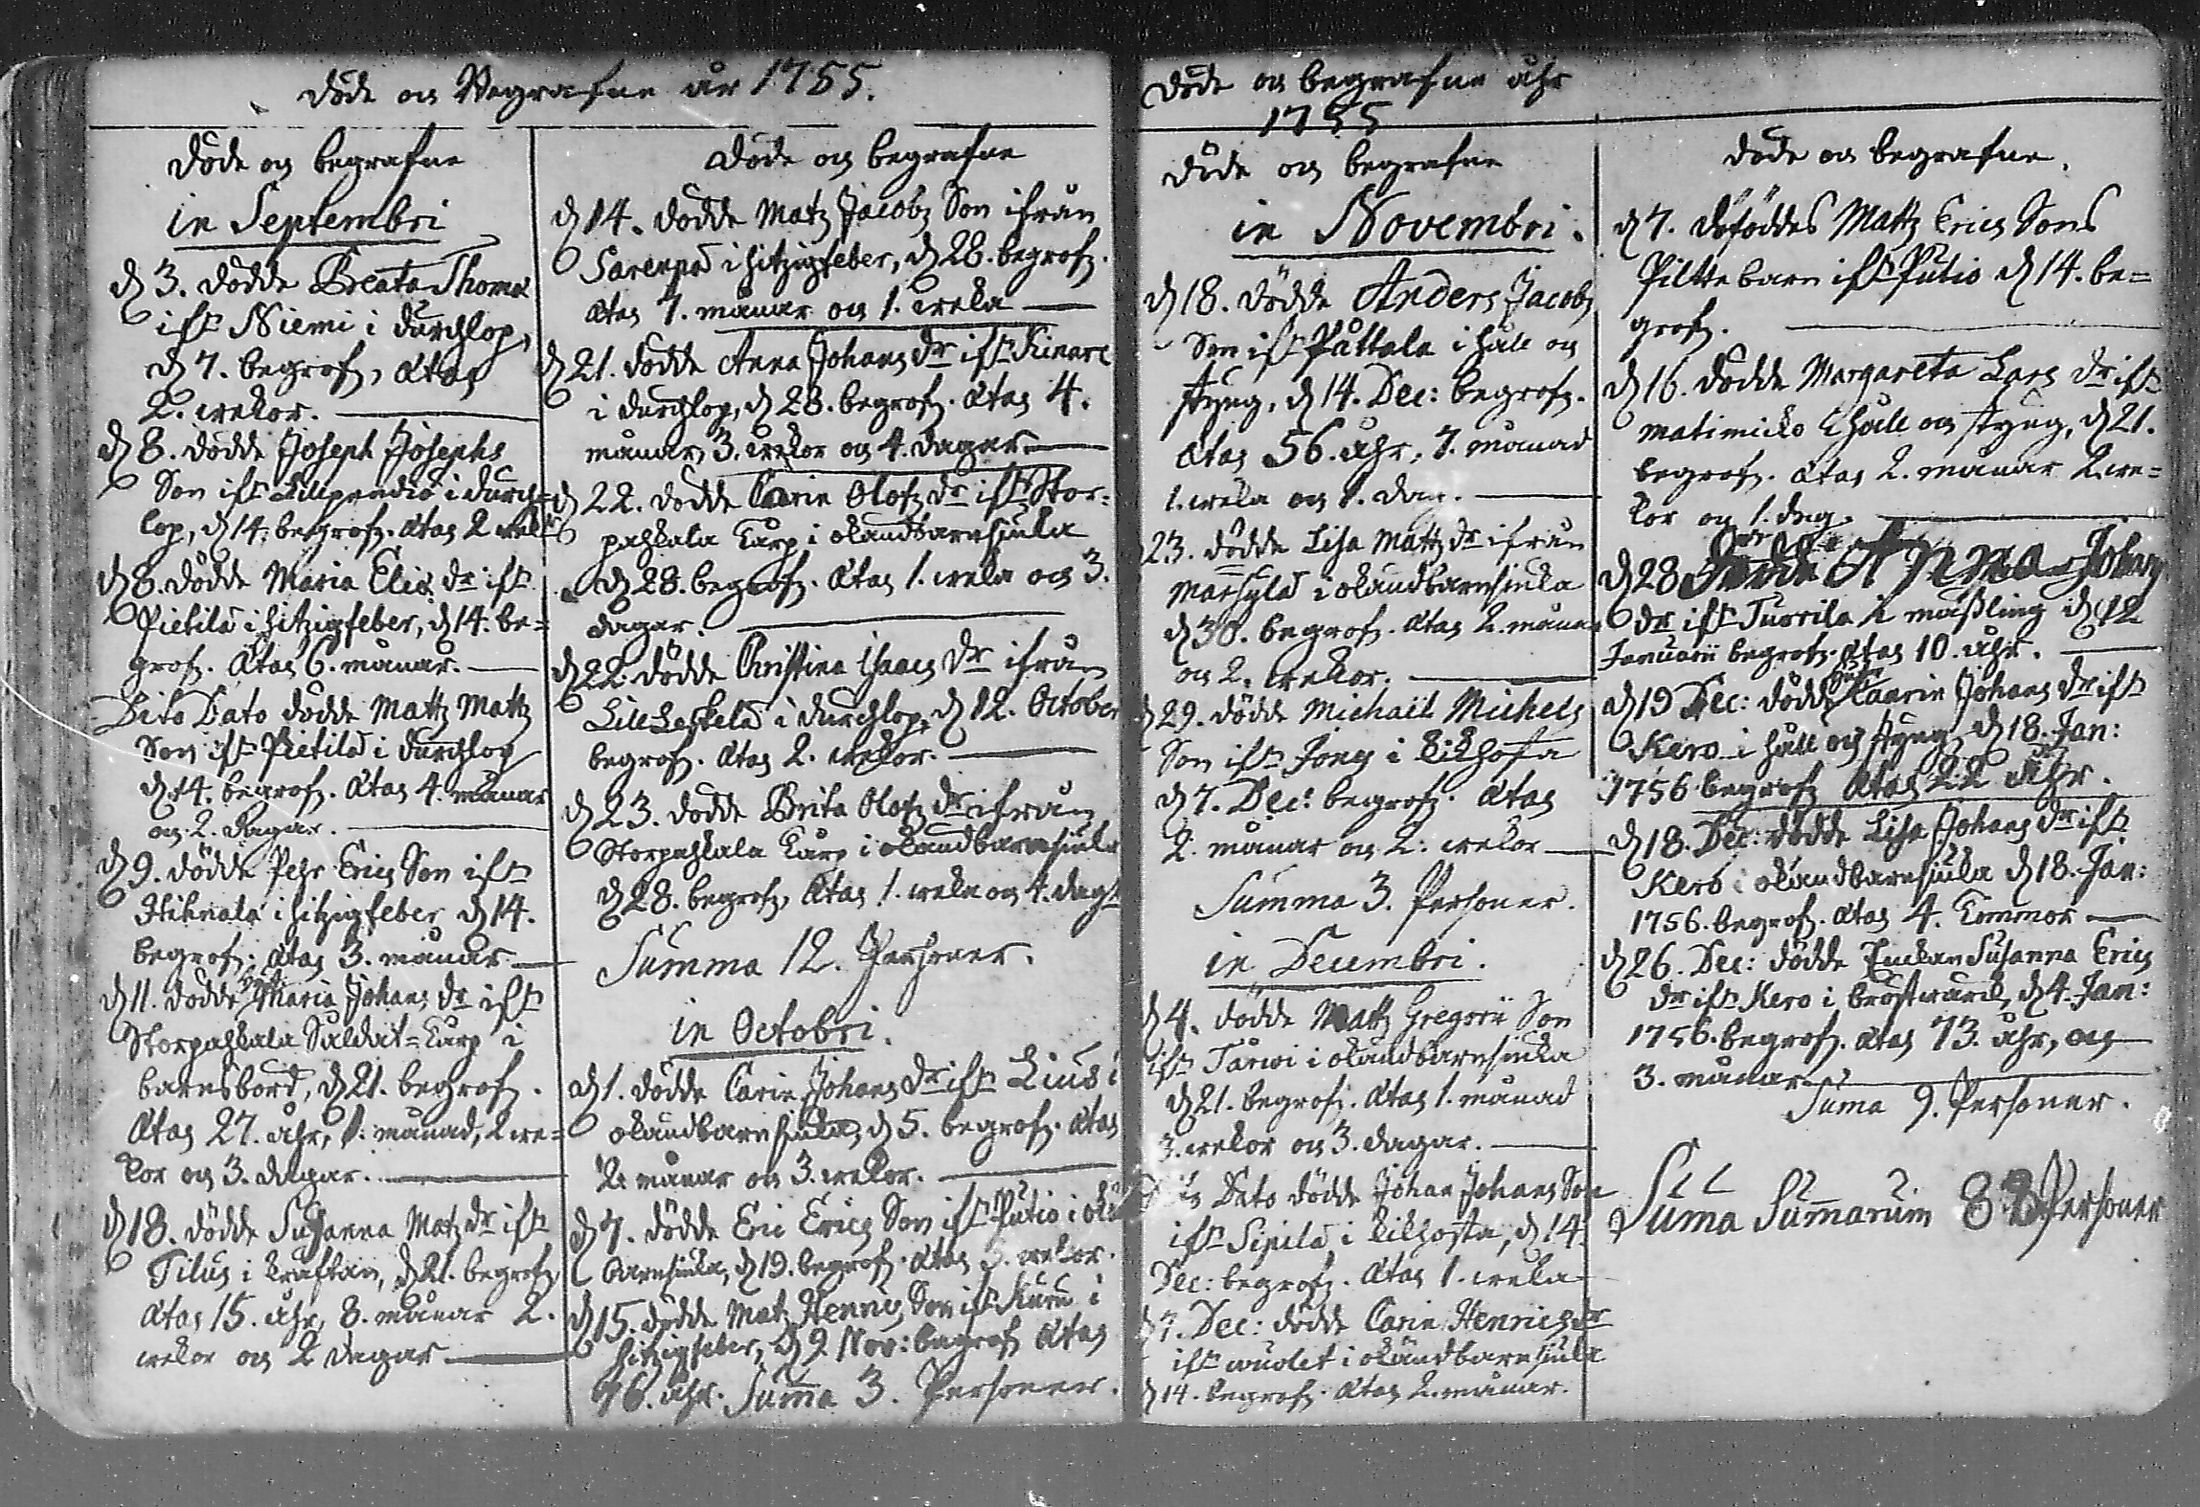 Döde och Begrafne år 1755.
Döde och begrafne
in Septembri
d 3. dödde Beata Thomæ
ifrn Niemi i durchlop,
d 7. begrofz, Ætas
2. wekor.
d 8. dödde Joseph Josephs
Son ifrn Lillpendiö i durch=
lop, d 14. begrofz. Ætas 2 wekr
d 8. dödde Maria Eliæ dr ifrn
Pietilä i hitzigfeber, d 14. be=
grofz. Ætas 6. månar.
Dito Dato dödde Mattz Mattz
Son ifrn Pietilä i durchlop
d 14. begrofz. Ætas 4. månar
och 2. dagar.
d 9. dödde Pehr Erics Son ifrn
Hihnala i hitzigfeber d 14.
begrofz. Ætas 3. månar
d 11. dödde Maria Johans dr ifrn
Storpaskala Saldat=Torp i
barnsbörd, d 21. begrofz.
Ætas 27. åhr, 1. månad, 2 we=
kor och 3. dagar.
d 18. dödde Susanna Matz dr ifrn
Tilus i kräftan, d 21. begrofz,
Ætas 15. åhr, 8. månar 2.
wekor och 2 dagar
Döde och begrafne
d 14. dödde Matz Jacobz Son ifrån
Sarenpä i hitzigfeber, d 28. begrofz.
Ætas 7. månar och 1. weka
d 21. dödde Anna Johans dr ifrn Kinare
i durchlop, d 28. begrofz. Ætas 4.
månar, 3. wekor och 4. dagar
d 22. dödde Carin Olofz dr ifrn Stor=
paskala Torp i okändbarnsiuka
d 28. begrofz. Ætas 1. weka och 3.
dagar.
d 22. dödde Christina Isaacs dr ifrån
Lill Leskelä i durchlop, d 12. October
begrofz. Ætas 2. wekor.
d 23. dödde Brita Olofz dr ifrån
Storpaskala Torp i okändbarnsiuka
d 28. begrofz, Ætas 1. weka och 4. dagr
Summa 12. Personer.
in Octobri.
d 1. dödde Carin Johans dr ifrn Lius i
okändbarnsiuka, d 5. begrofz. Ætas
2. månar och 3. wekor.
d 7. dödde Eric Erics Son ifrn Putio i okä
barnsiuka, d 19. begrofz. Ætas 3. wekor.
d 15. dödde Matz Henrics Son ifrn Kuru i
hitzigfeber, d 9 Nov: begrofz Ætas
76. åhr. Suma 3. Personer.
Döde och begrafne åhr
1755
Döde och begrafne
in Novembri.
d 18. dödde Anders Jacobz
Son ifrn Påttala i håll och
styng, d 14. Dec: begrofz.
Ætas 56. åhr, 7. månad
1. weka och 1. dag.
23. dödde Lisa Mattz dr ifrån
Marsylä i okändbarnsiuka
d 30. begrofz. Ætas 2. månar
och 2. wekor.
d 29. dödde Michaël Michels
Son ifrn Jong i kikhosta
d 7. Dec: begrofz. Ætas
2. månar och 2. wekor
Summa 3. Personer.
in Decembri.
d 4. dödde Mattz Gregorii Son
ifrn Tarwi i okändbarnsiuka
d 21. begrofz. Ætas 1. månad
3. wekor och 3. dagar.
Dato dödde Johan Johans Son
ifrn Sipilä i kikhosta, d 14.
Dec: begrofz. Ætas 1. weka
d 7. Dec: dödde Carin Henrics dr
ifrn wuolet i okändbarnsiuka
d 14. begrofz. Ætas 2. månar.
Döde och begrafne.
d 7. döföddes Mattz Erics Sons
Piltebarn ifrn Putio d 14. be=
grofz.
d 16. dödde Margareta Lars dr ifrn
matimicko i håll och styng, d 21.
begrofz. Ætas 2. månar 2. we=
kor och 1. dag.
d 28 Anna Johans
dr ifrn Turrila i mässling d 12
Januarii begrofz. Ætas 10. åhr.
d 19 Dec: dödde Caarin Johans dr ifrn
Kero i håll och styng d 18. Jan:
1756 begrofz Ætas 22 åhr.
d 18. Dec: dödde Lisa Johans dr ifrn
Kerö i okändbarnsiuka d 18. Jan:
1756. begrofz. Ætas 4. Timmor
d 26. Dec: dödde Enckan Susanna Erics
dr ifrn Kero i bröstwärck, d 4. Jan:
1756. begrofz. Ætas 73. åhr, och
3. månar.
Suma 9. Personer.
Suma Sumarum Personer